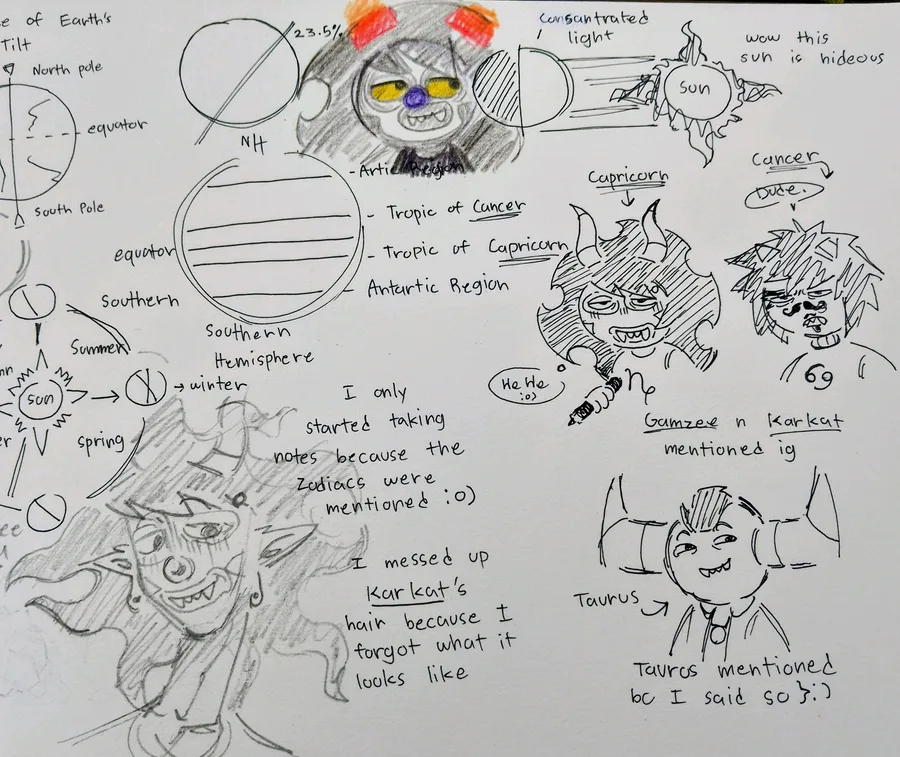 e of Earth's
Tilt
North pole
equator
South Pole
23.5%
NH
Consantrated
light
sun
wow this
sun is hideous
-Artic Region
- Tropic of Cancer
- Tropic of Capricorn
- Antartic Region
equator
Southern
Hemisphere
Southern
Summer
winter
spring
sun
Capricorn
Cancer
Dude.
HeHe
:o)
69
Gamzee n Karkat
mentioned ig
I only
started taking
notes because the
Zodiacs were
mentioned :o)
I messed up
Karkat's
hair because I
forgot what it
looks like
Taurus
Taurus mentioned
bc I said so }:)